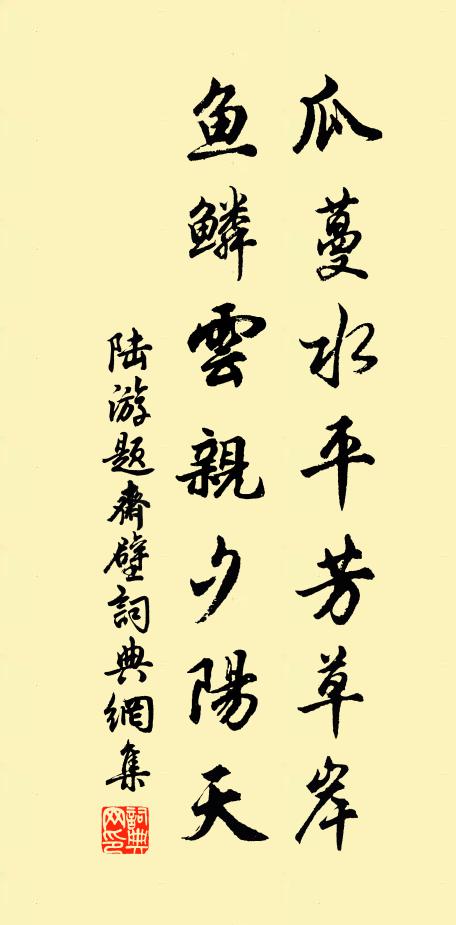 瓜蔓水平芳草岸
鱼鳞雲親夕陽天
陆游题齋壁詞典網集
詞典网印